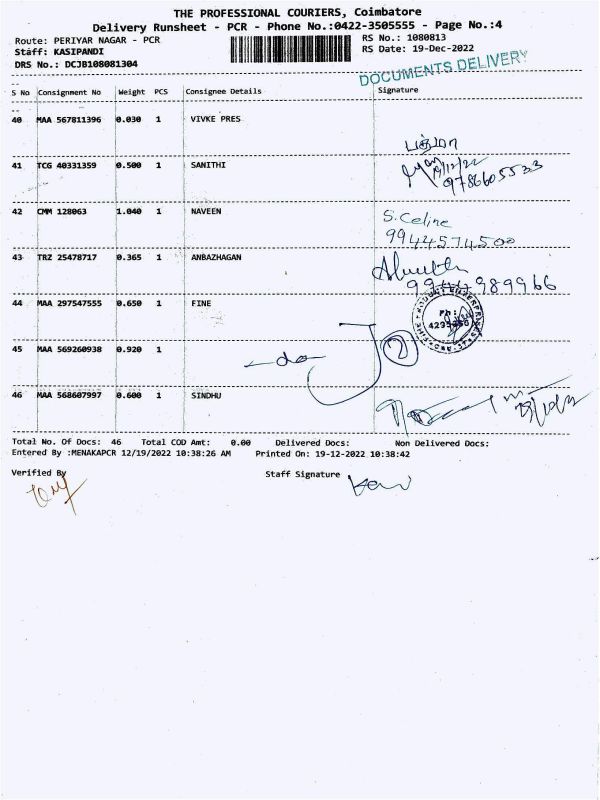 THE PROFESSIONAL COURIERS, Coimbatore
Delivery Runsheet - PCR - Phone No.:0422-3505555 - Page No.:4
Route: PERIYAR NAGAR - PCR
RS No.: 1080813
Staff: KASIPANDI
RS Date: 19-Dec-2022
DRS No.: DCJB108081304
DOCUMENTS DELIVERY
S No Consignment No Weight PCS Consignee Details Signature
40 MAA 567811396 0.030 1 VIVKE PRES
பத்மா
41 TCG 40331359 0.500 1 SANITHI
19/12/22
9786605533
42 CMM 128063 1.040 1 NAVEEN
S. Celine
9944574500
43 TRZ 25478717 0.365 1 ANBAZHAGAN
44 MAA 297547555 0.650 1 FINE
Ph:
45 MAA 569260938 0.920 1
-do-
2
46 MAA 568607997 0.600 1 SINDHU
Total No. Of Docs: 46 Total COD Amt: 0.00 Delivered Docs: Non Delivered Docs:
Entered By :MENAKAPCR 12/19/2022 10:38:26 AM Printed On: 19-12-2022 10:38:42
Verified By
Staff Signature